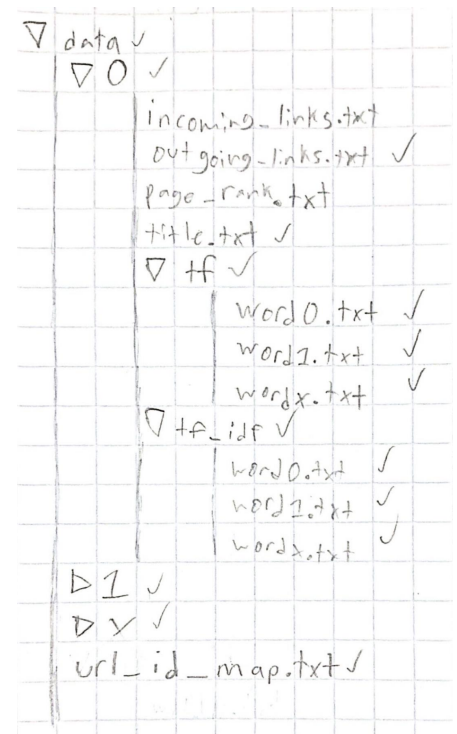 ▽ data ✓
▽ 0 ✓
incoming_links.txt
outgoing_links.txt ✓
page_rank.txt
title.txt ✓
▽ tf ✓
word0.txt ✓
word1.txt ✓
wordx.txt ✓
▽ tf_idf ✓
word0.txt ✓
word1.txt ✓
wordx.txt ✓
▷ 1 ✓
▷ y ✓
url_id_map.txt ✓